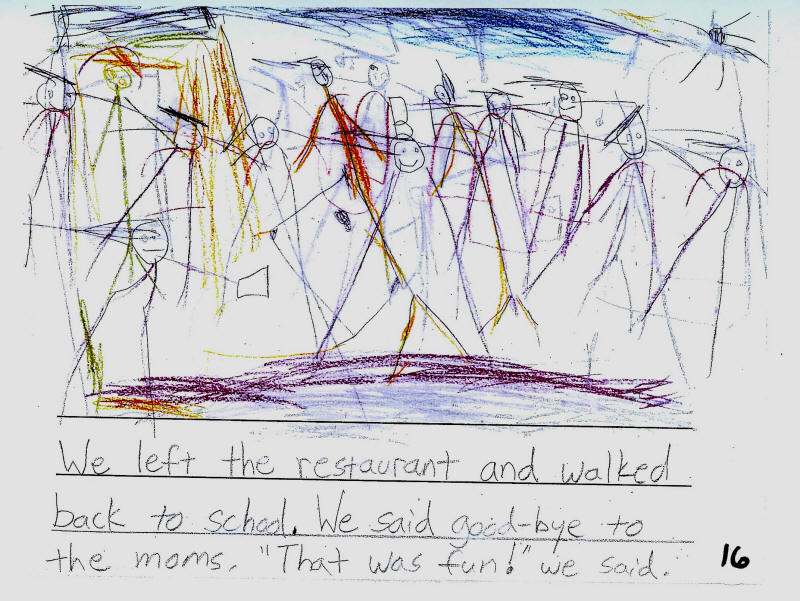 We left the restaurant and walked
back to school. We said good-bye to
the moms. "That was fun!" we said.
16